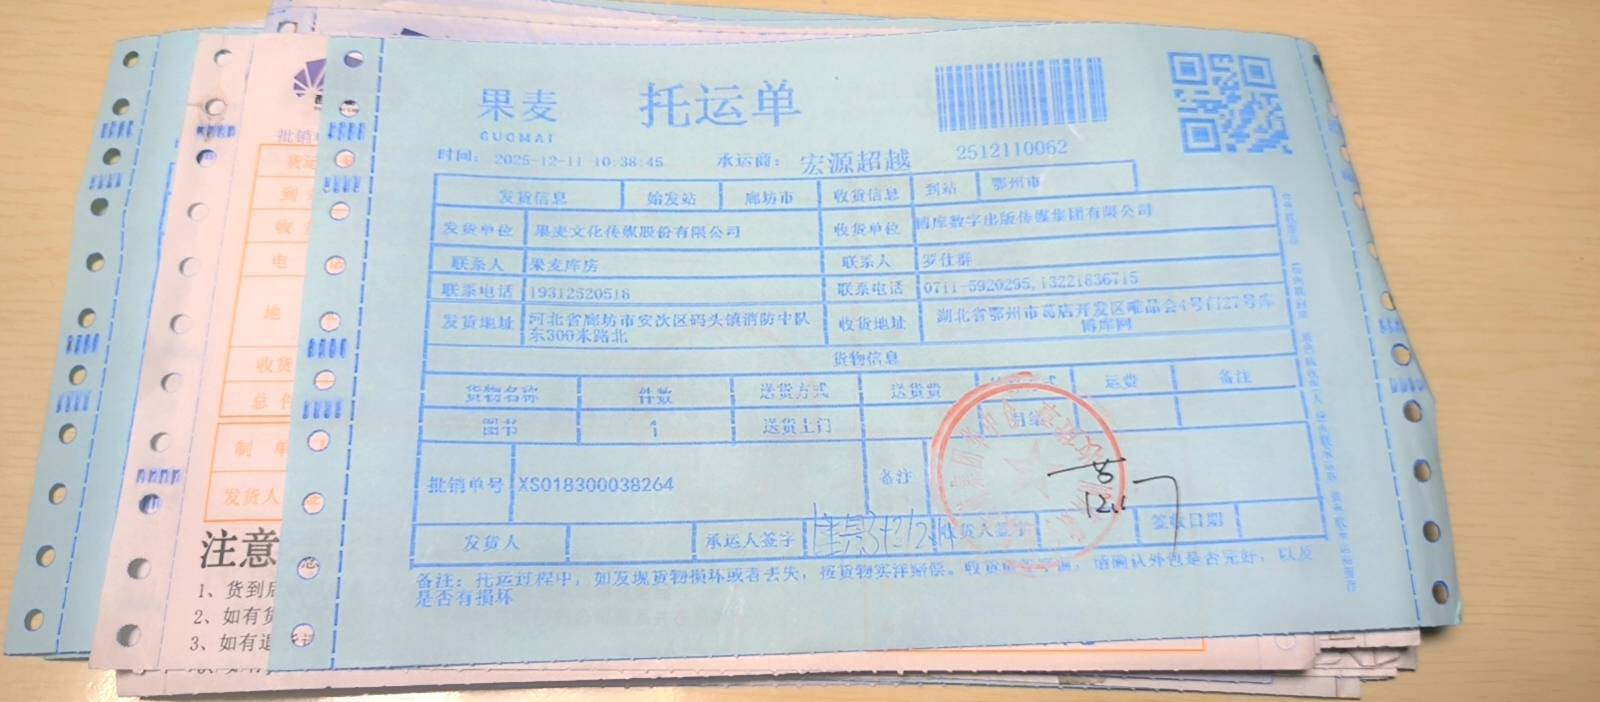 果麦 托运单
GUOMAI
时间: 2025-12-11 10:38:45 承运商: 宏源超越 2512110062
发货信息 始发站 廊坊市 收货信息 到站 鄂州市
发货单位 果麦文化传媒股份有限公司 收货单位 博库数字出版传媒集团有限公司
联系人 果麦库房 联系人 罗仕群
联系电话 19312520518 联系电话 0711-5920295,13221836715
发货地址 河北省廊坊市安次区码头镇消防中队 收货地址 湖北省鄂州市葛店开发区唯品会4号门27号库
东300米路北 博库网
货物信息
货物名称 件数 送货方式 送货费 运费 备注
图书 1 送货上门
批销单号 XS018300038264 备注
发货人 承运人签字 收货人签字 签收日期
备注: 托运过程中, 如发现货物损坏或者丢失, 按货物实洋赔偿。收货 请确认外包是否完好, 以及
是否有损坏
批销单
到
收
电
地
收货
总件
制 单
发货人
注意
1、货到后
2、如有货
3、如有退